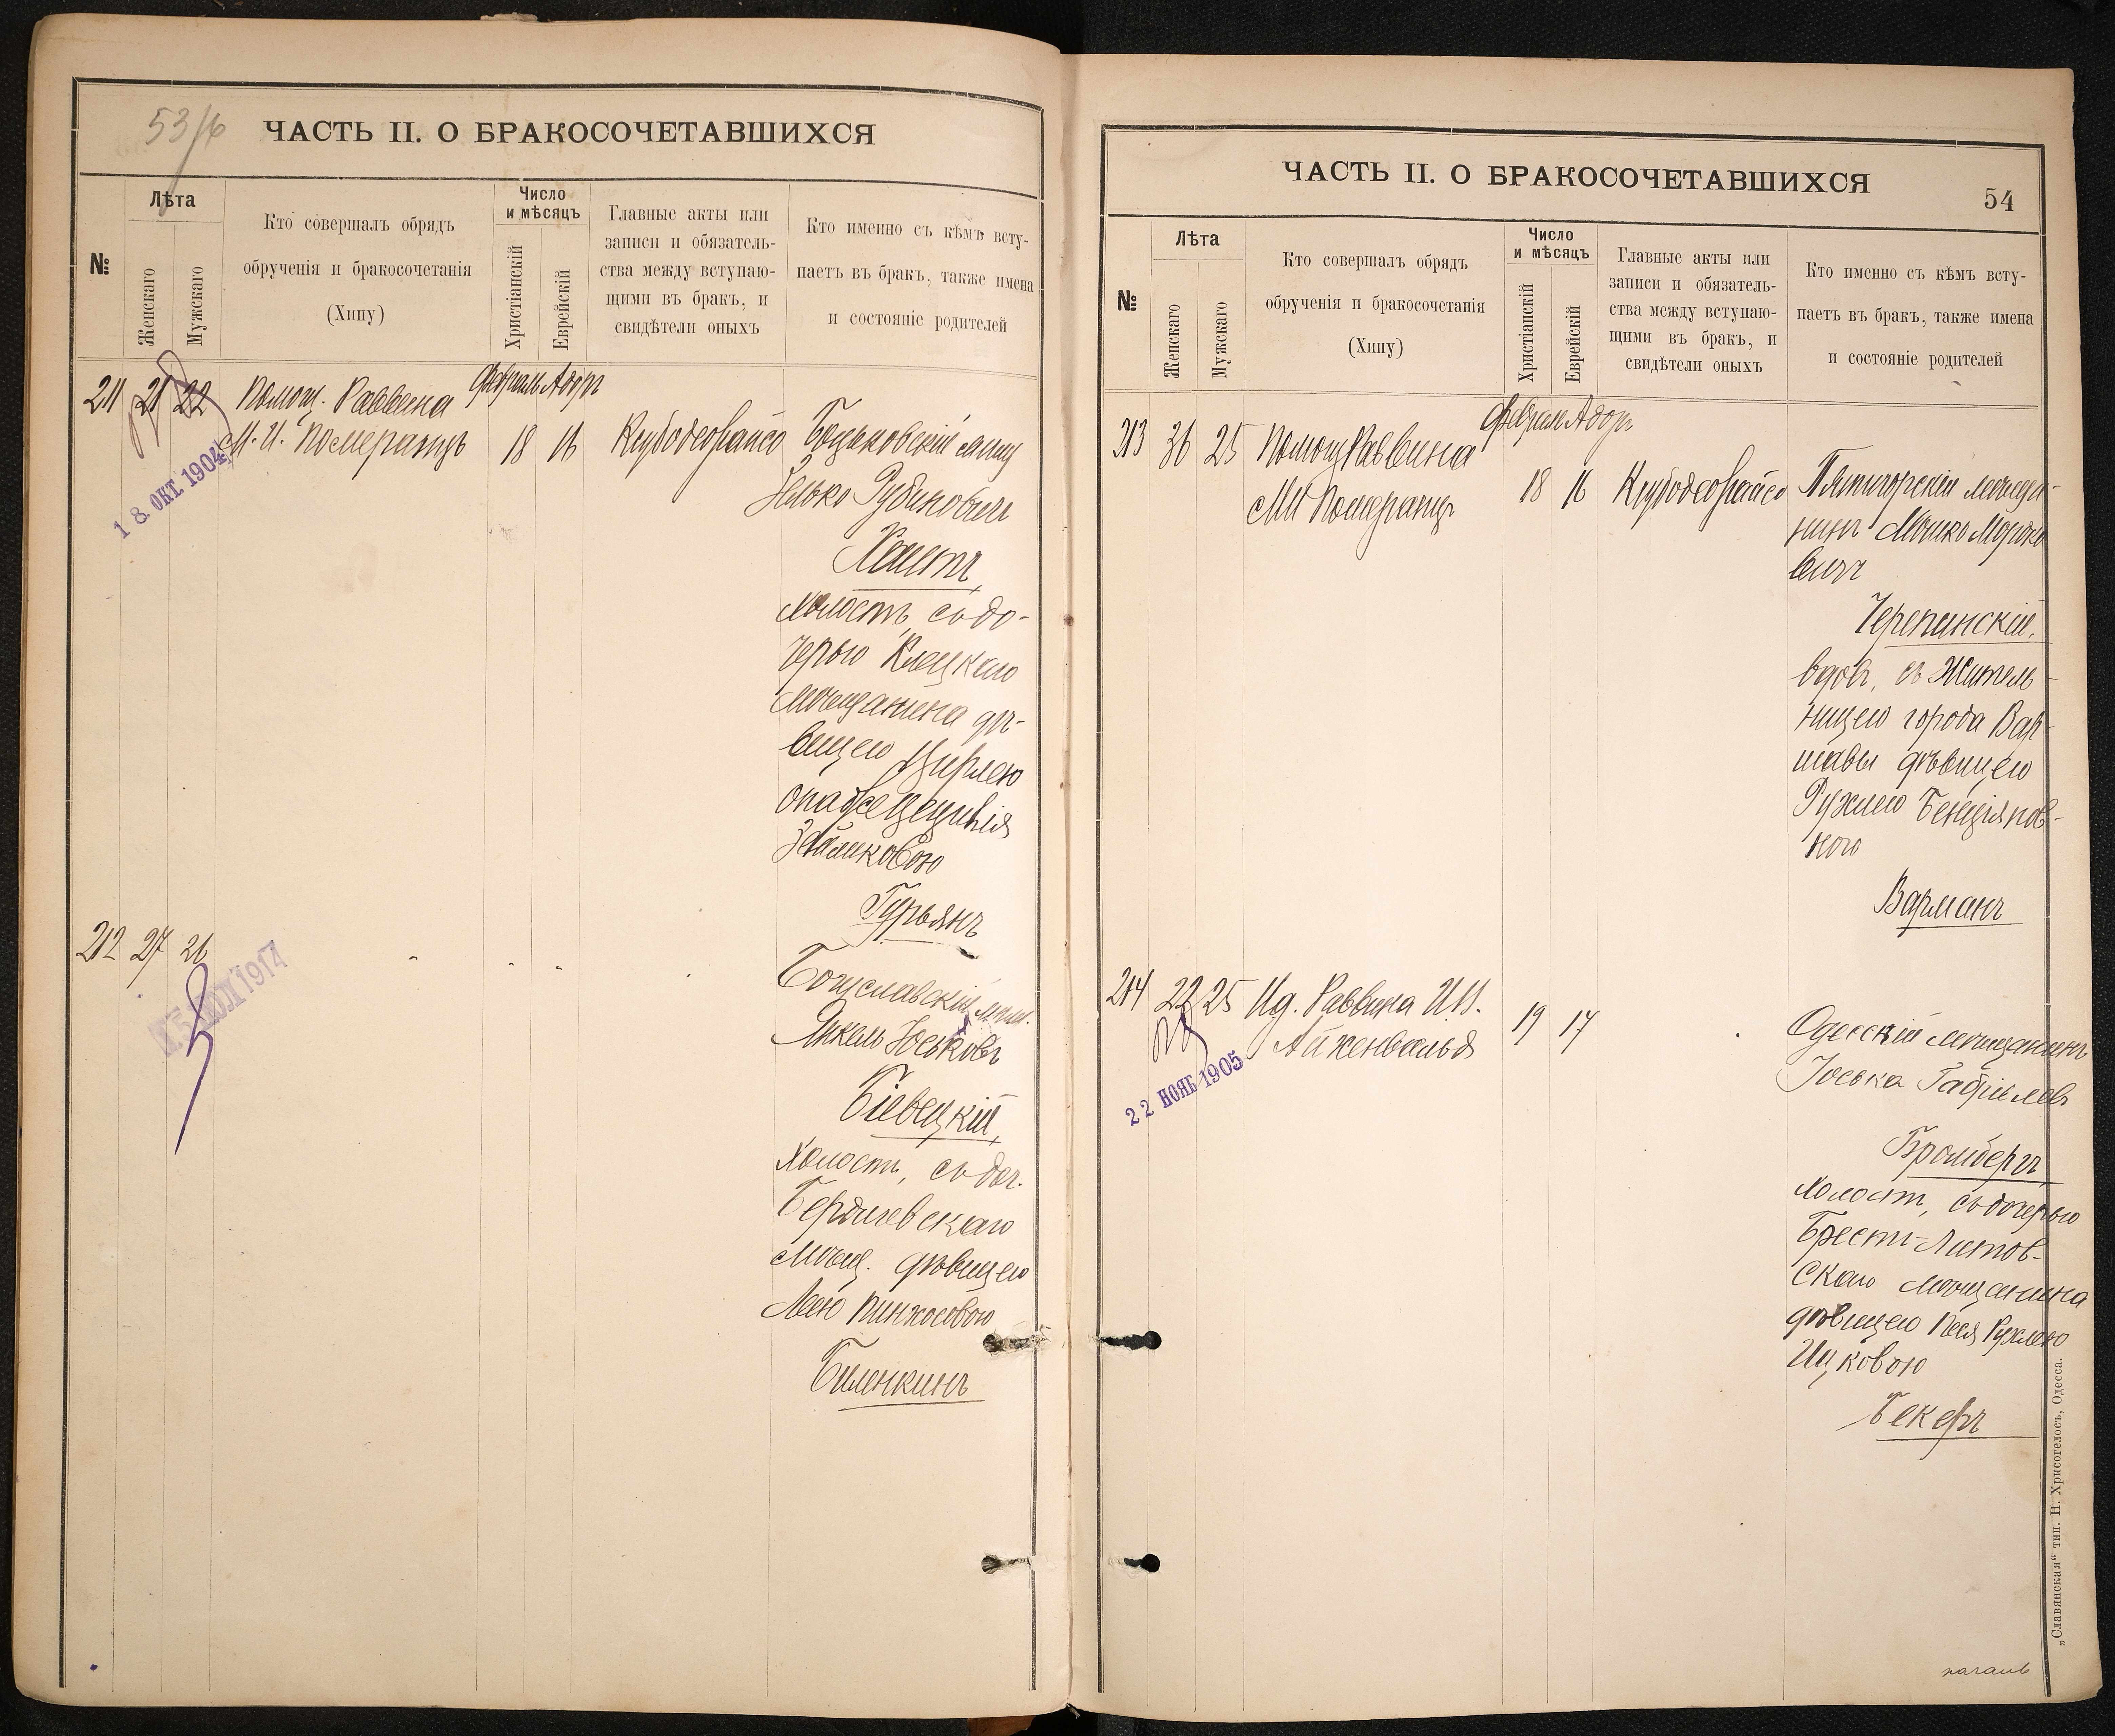 53/6
ЧАСТЬ II. О БРАКОСОЧЕТАВШИХСЯ
№
Лѣта
Женскаго
Мужскаго
Кто совершалъ обрядъ
обрученія и бракосочетанія
(Хипу)
Число
и мѣсяцъ
Христіанскій
Еврейскій
Главные акты или
записи и обязатель-
ства между вступаю-
щими въ бракъ, и
свидѣтели оныхъ
Кто именно съ кѣмъ всту-
паетъ въ бракъ, также имена
и состояніе родителей
211 21 22 Помощ. Раввина
Февраль Адоръ
М. И. Померанцъ 18 16
18 ОКТ. 1904
Зелько Рубиновичъ
холостъ, съ до-
черью Клецкаго
мѣщанина дѣ-
вицею Цирлею
Гурьянъ
212 27 26
1914
Богуславскій мѣщ.
Янкель Юськовъ
Бѣвецкій,
холостъ, съ доч.
Бердичевскаго
мѣщ. дѣвицею
Леею Пинхосовою
Биленкинъ
ЧАСТЬ II. О БРАКОСОЧЕТАВШИХСЯ
54
№
Лѣта
Женскаго
Мужскаго
Кто совершалъ обрядъ
обрученія и бракосочетанія
(Хипу)
Число
и мѣсяцъ
Христіанскій
Еврейскій
Главные акты или
записи и обязатель-
ства между вступаю-
щими въ бракъ, и
свидѣтели оныхъ
Кто именно съ кѣмъ всту-
паетъ въ бракъ, также имена
и состояніе родителей
213 36 25 Помощ Раввина
Февраль Адоръ
М И Померанцъ 18 16
Пятигорскій мѣща-
нинъ Мошко Мордко
вичъ
Черепинскій,
вдовъ, съ житель-
ницею города Вар-
шавы дѣвицею
Рухлею Бенціянов-
ною
Варманъ
214 22 25 Ид. Раввина И.В.
Айхенвальдъ 19 17
22 НОЯБ 1905
Одесскій мѣщанинъ
Іоська Габріелевъ
Бромбергъ
холостъ, съ дочерью
Брестъ-Литов-
скаго мѣщанина
дѣвицею Песя Рухлею
Ицковою
Бекеръ
„Славянская“ тип. Н. Хрисогелосъ, Одесса.